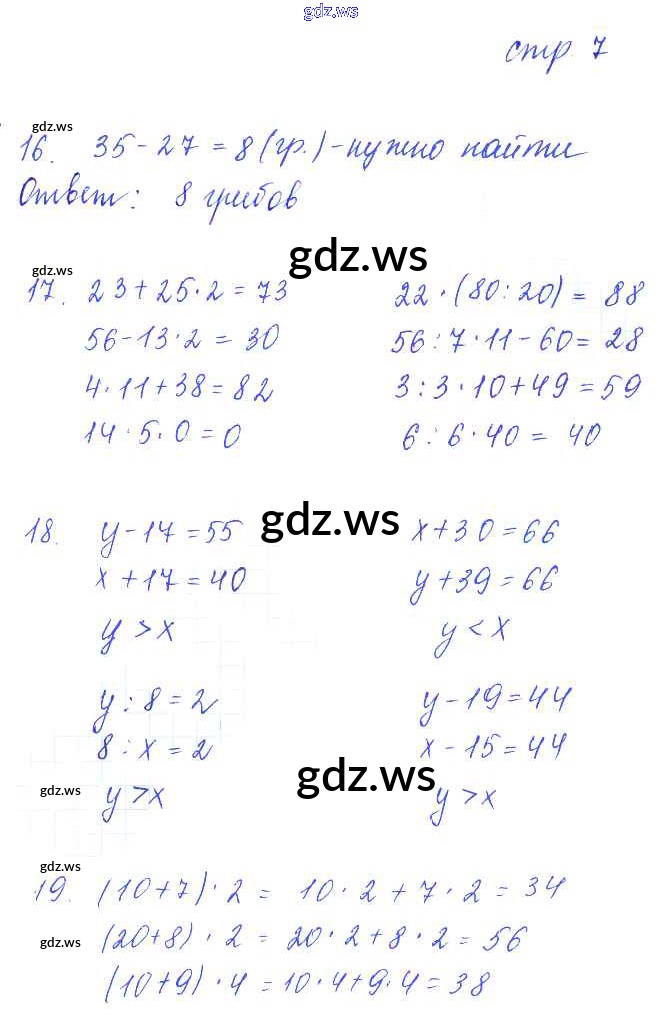 gdz.ws
стр. 7
gdz.ws
16. 35 - 27 = 8 (гр.) - нужно найти
Ответ: 8 грибов
gdz.ws
gdz.ws
17. 23 + 25 · 2 = 73
56 - 13 · 2 = 30
4 · 11 + 38 = 82
14 · 5 · 0 = 0
22 · (80 : 20) = 88
56 : 7 · 11 - 60 = 28
3 : 3 · 10 + 49 = 59
6 : 6 · 40 = 40
gdz.ws
18. y - 17 = 55
x + 17 = 40
y > x
x + 30 = 66
y + 39 = 66
y < x
y : 8 = 2
8 : x = 2
y > x
y - 19 = 44
x - 15 = 44
y > x
gdz.ws
gdz.ws
gdz.ws
19. (10 + 7) · 2 = 10 · 2 + 7 · 2 = 34
gdz.ws
(20 + 8) · 2 = 20 · 2 + 8 · 2 = 56
(10 + 9) · 4 = 10 · 4 + 9 · 4 = 38